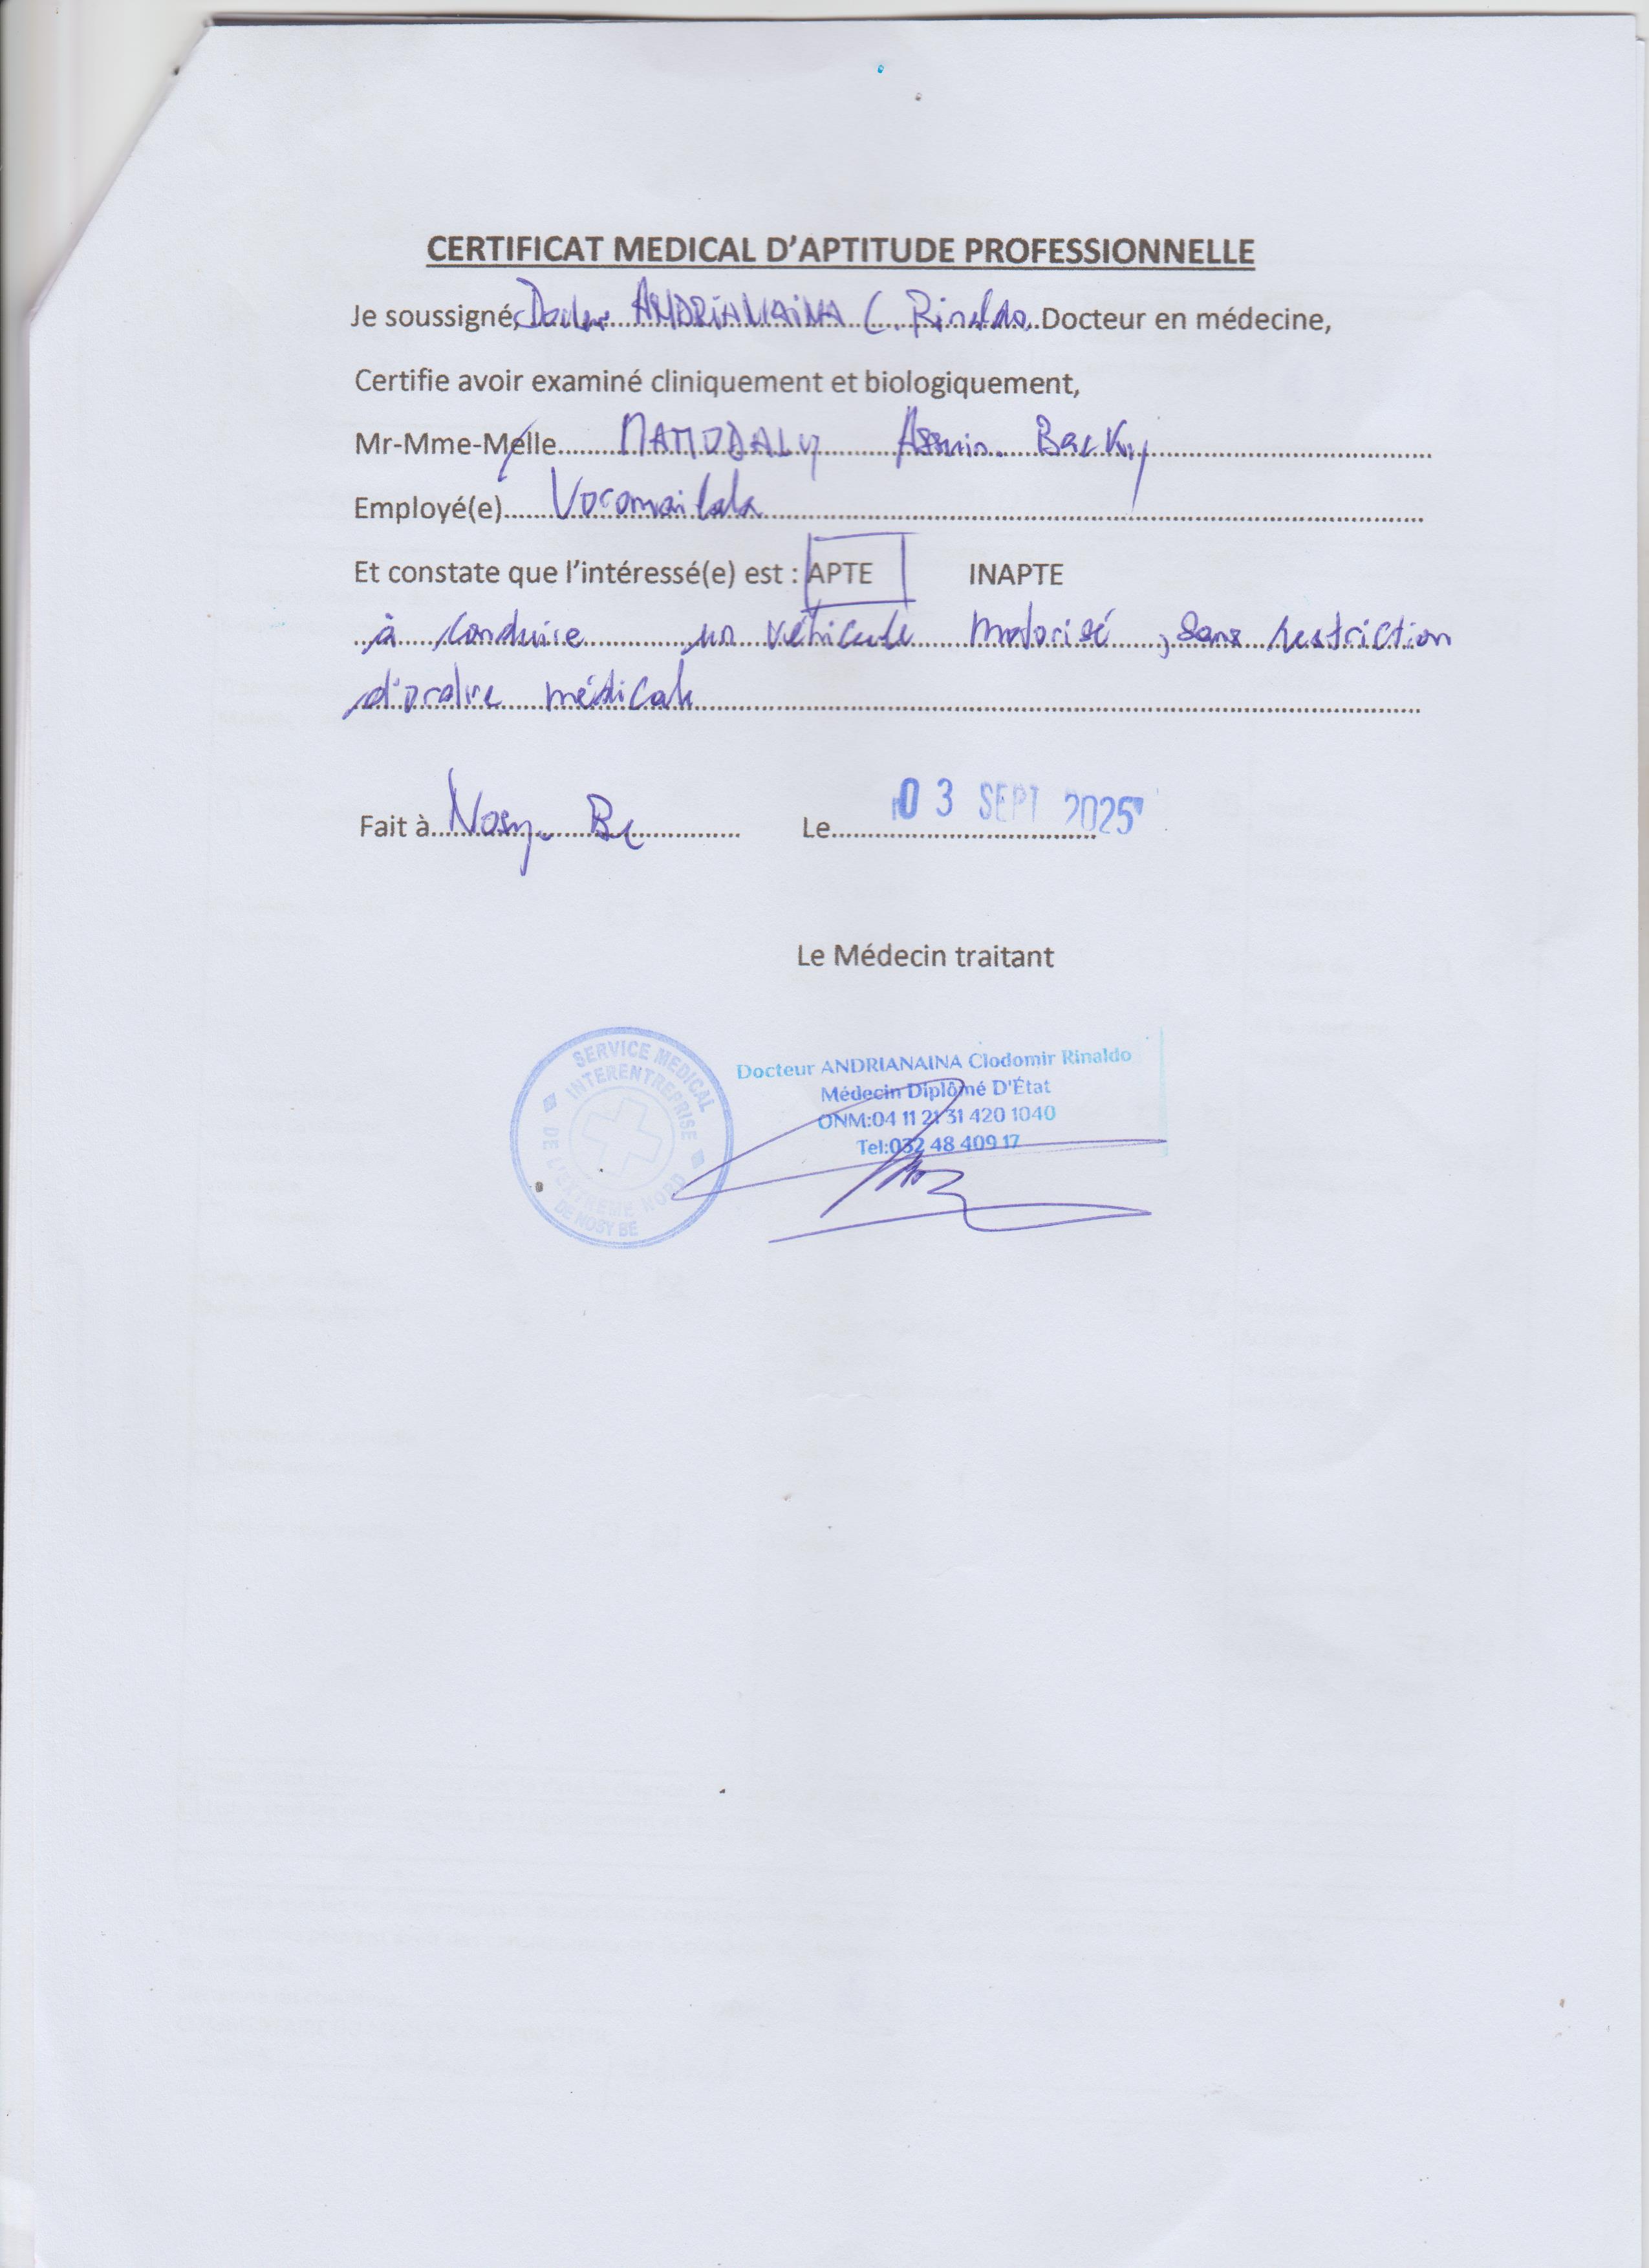 CERTIFICAT MEDICAL D'APTITUDE PROFESSIONNELLE
Je soussigné, Docteur ANDRIANAINA C. Rinaldo Docteur en médecine,
Certifie avoir examiné cliniquement et biologiquement,
Mr-Mme-Melle MAMODALY Backy
Employé(e)
Et constate que l'intéressé(e) est : APTE INAPTE
à conduire un véhicule motorisé, sans restriction
d'ordre médicale
Fait à Nosy-Be Le 03 SEPT 2025
Le Médecin traitant
SERVICE MEDICAL
INTERENTREPRISE
DE L'EXTREME NORD
DE NOSY BE
Docteur ANDRIANAINA Clodomir Rinaldo
Médecin Diplômé D'État
ONM:04 11 21 31 420 1040
Tel:032 48 409 17